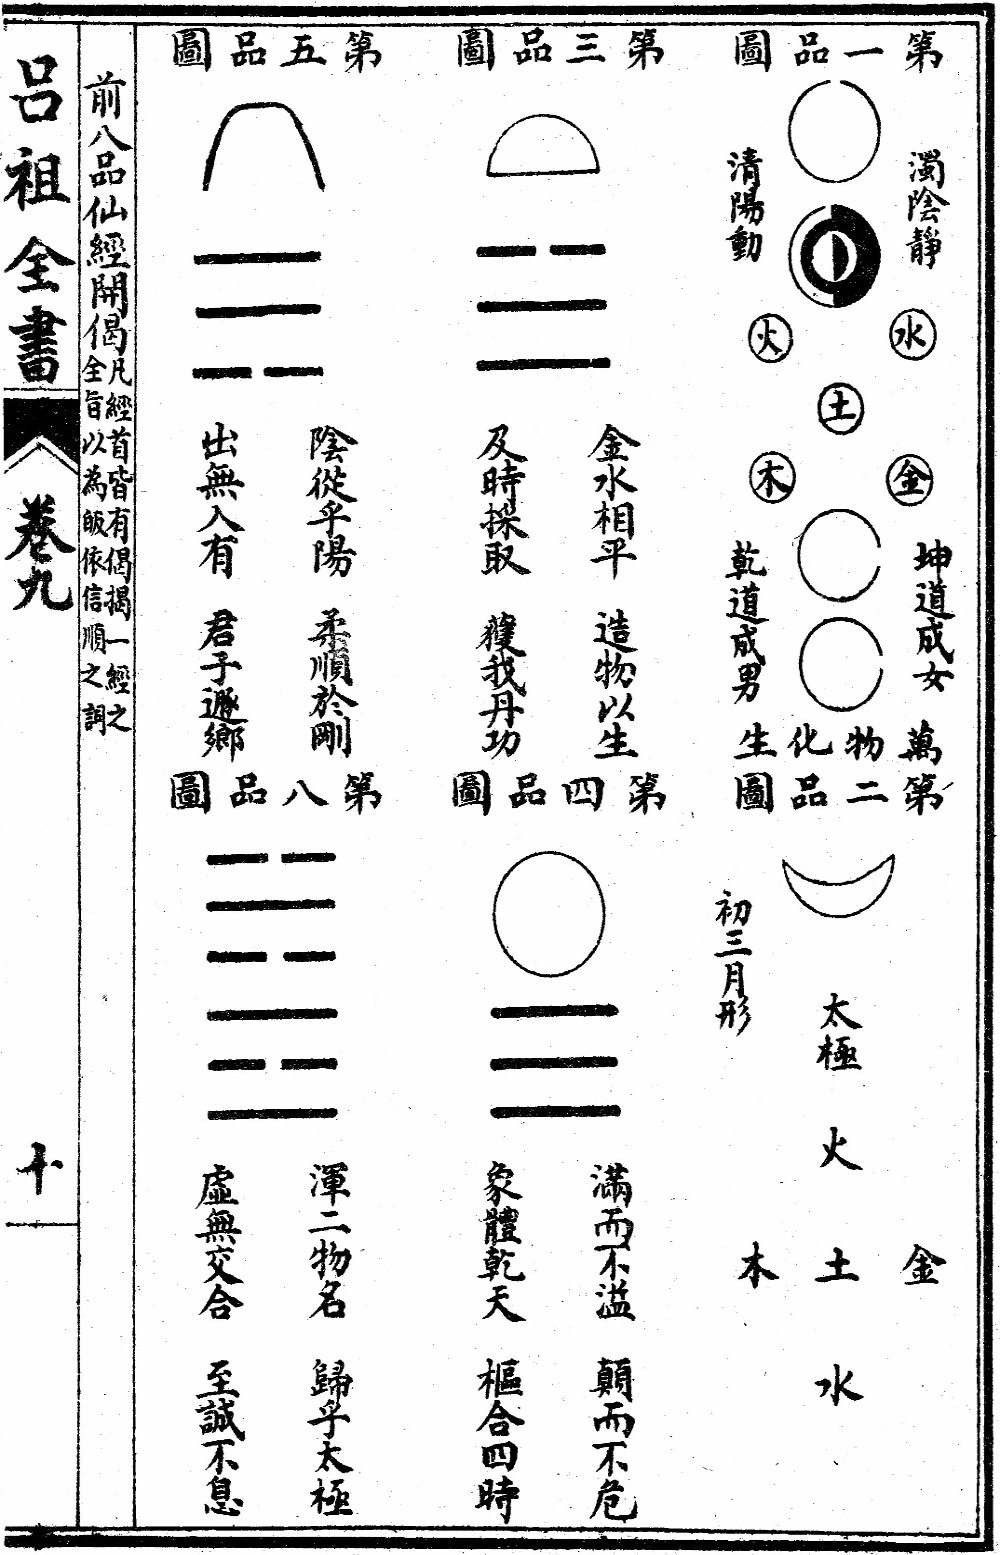 第一品圖
濁陰靜
清陽動
水
火
土
金
木
坤道成女
乾道成男
萬物化生
第二品圖
初三月形
太極
火
金
土
木
水
第三品圖
金水相平 造物以生
及時採取 獲我丹功
第四品圖
滿而不溢 顛而不危
象體乾天 樞合四時
第五品圖
陰從乎陽 柔順於剛
出無入有 君子遯鄉
第八品圖
渾二物名 歸乎太極
虛無交合 至誠不息
前八品仙經開偈
凡經首皆有偈揭一經之
全旨以為皈依信順之詞
呂祖全書
卷九
十